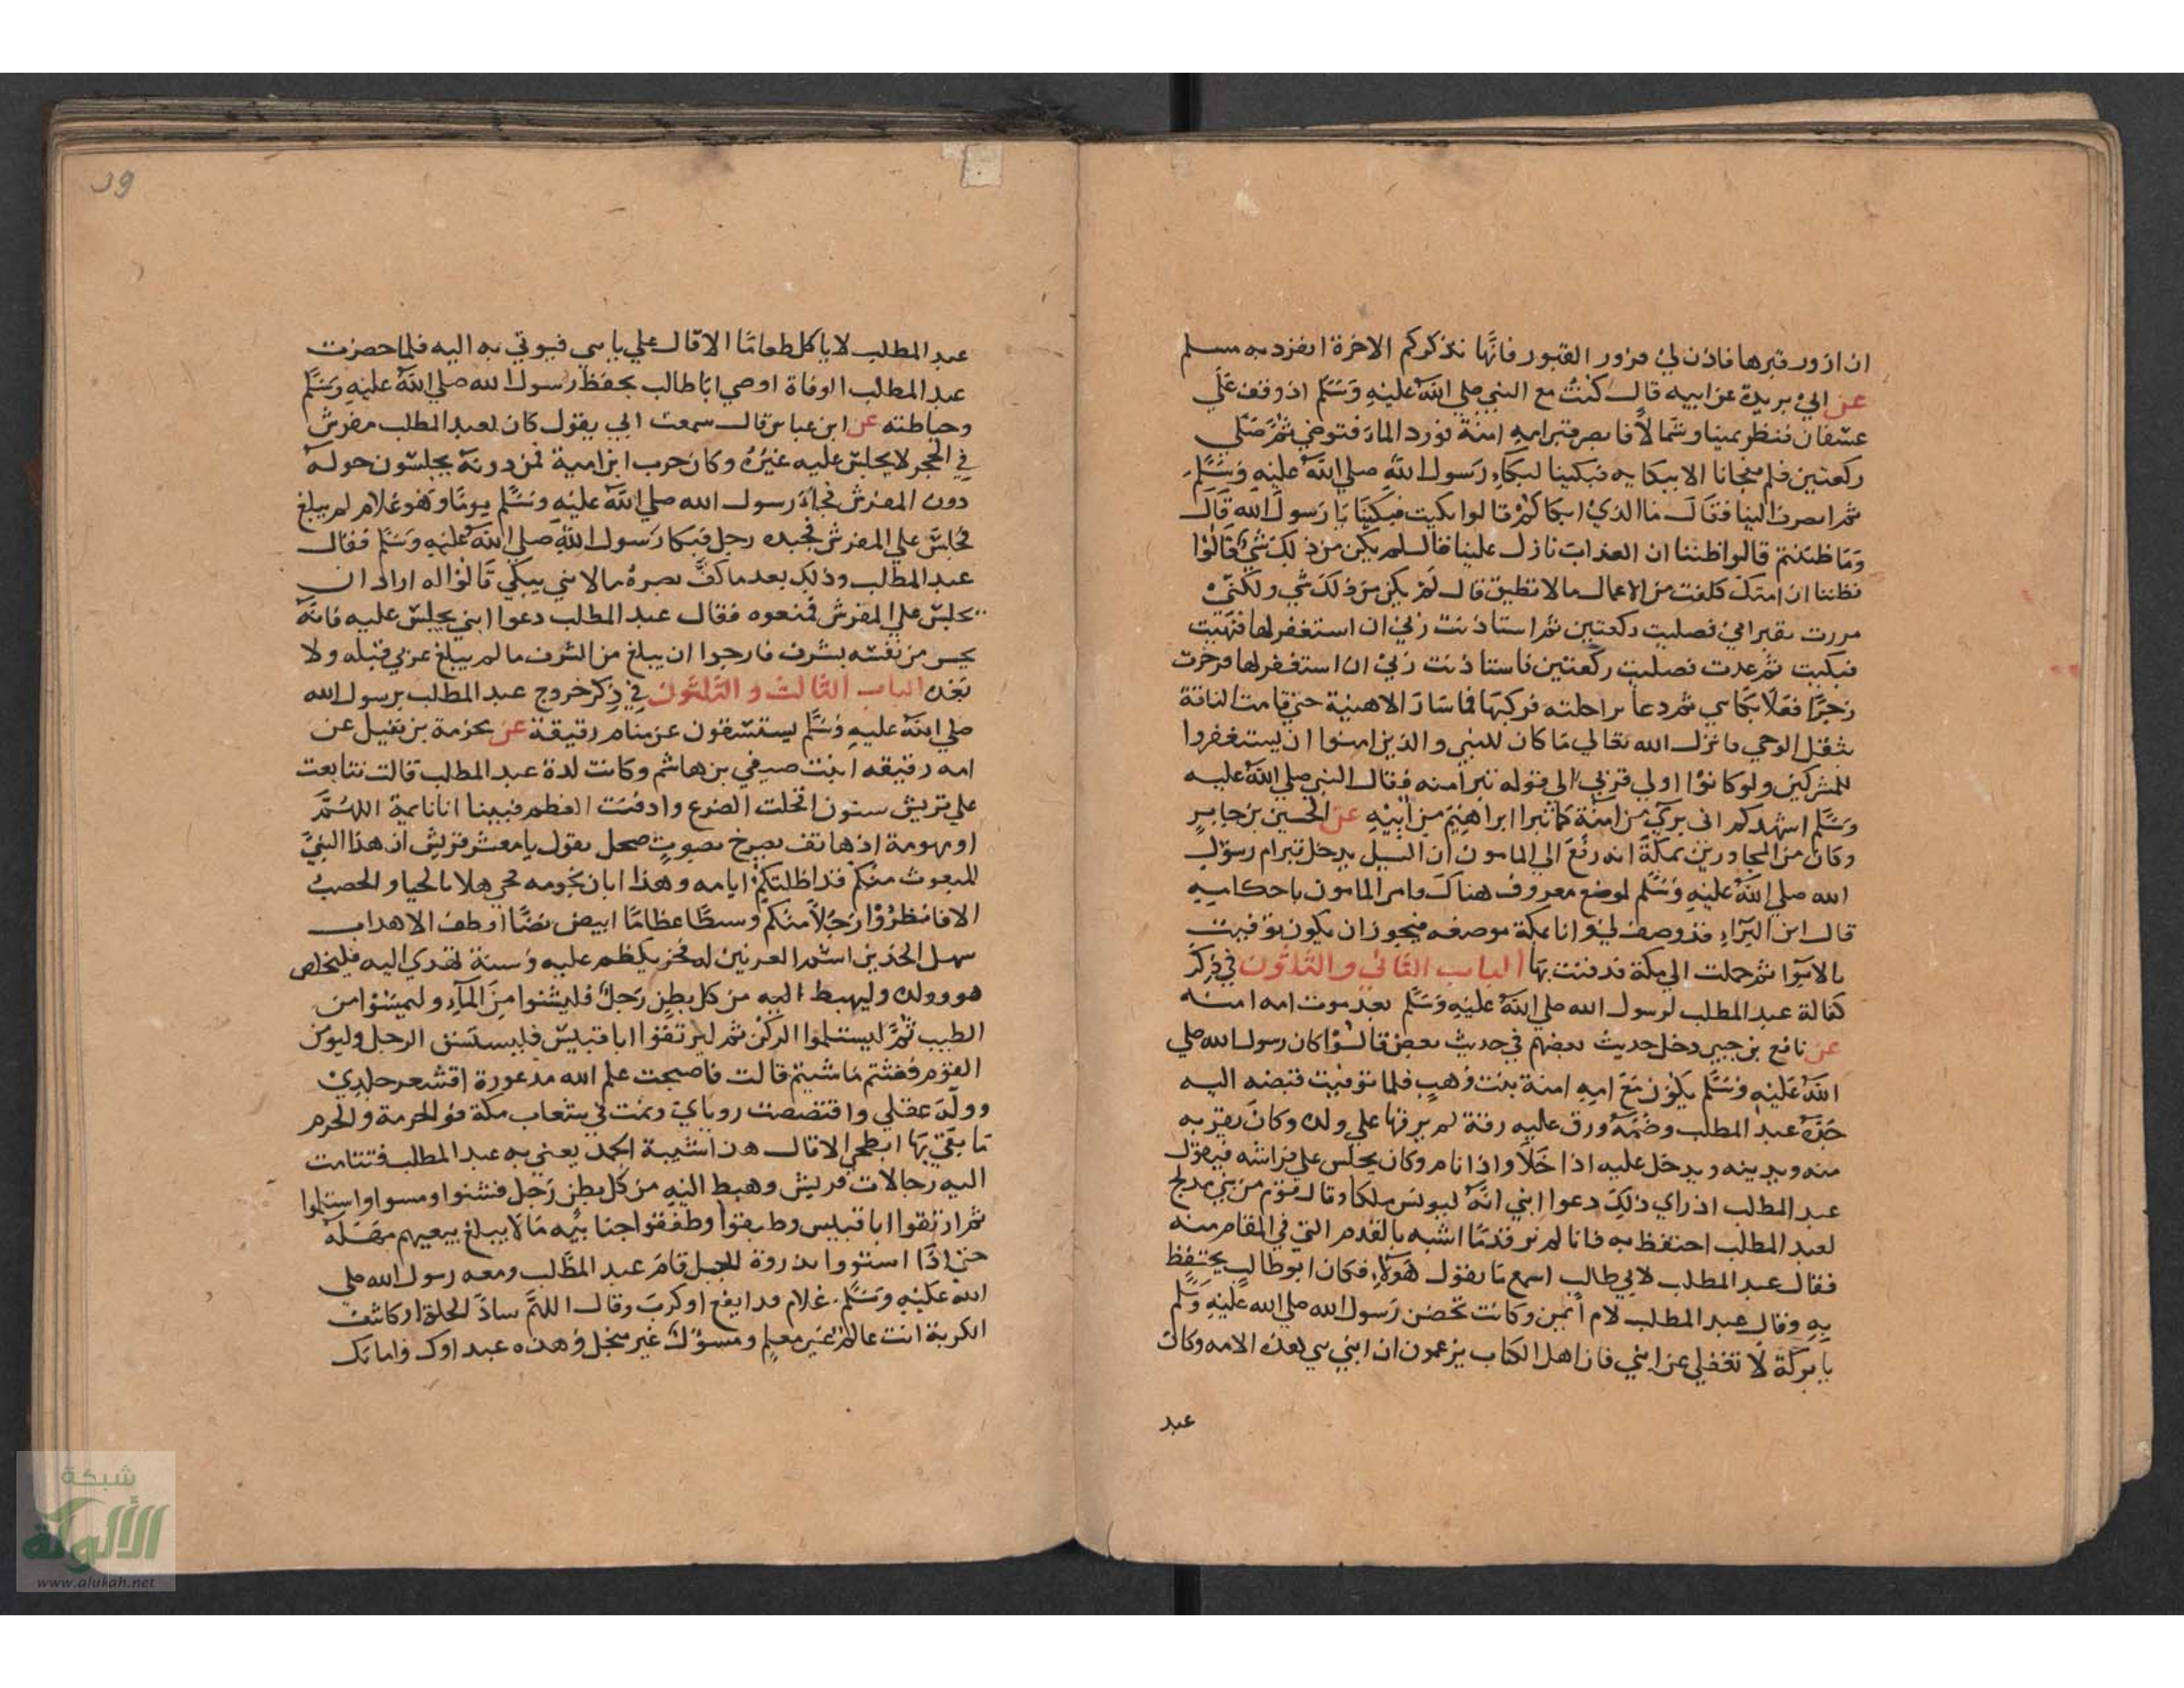 ان ازور قبرها فاذن لي فزوروا القبور فانها تذكركم الاخرة انفرد به مسلم
عن ابي بريدة عن ابيه قال كنت مع النبي صلي الله عليه وسلم اذ وقف علي
عسفان فنظر يمينا وشمالا فابصر قبر امه امنة فورد الماء فتوضي ثم صلي
ركعتين فلم يفجانا الا ببكايه فبكينا لبكاء رسول الله صلي الله عليه وسلم
ثم انصرف الينا فقال ما الذي ابكاكم قالوا بكيت فبكينا يا رسول الله قال
وما ظننتم قالوا ظننا ان العذاب نازل علينا قال لم يكن من ذلك شي قالوا
فظننا ان امتك كلفت من الاعمال ما لا تطيق قال لم يكن من ذلك شي ولكني
مررت بقبر امي فصليت ركعتين ثم استاذنت ربي ان استغفر لها فنهيت
فبكيت ثم عدت فصليت ركعتين فاستاذنت ربي ان استغفر لها فزجرت
زجرا فعلا بكاي ثم دعا براحلته فركبها فما سار الا هنية حتي قامت الناقة
بثقل الوحي فانزل الله تعالي ما كان للنبي والذين امنوا ان يستغفروا
للمشركين ولو كانوا اولي قربي الي قوله تبرا منه فقال النبي صلي الله عليه
وسلم اشهدكم اني بري من امنة كما تبرا ابراهيم من ابيه عن الحسين بن جابر
وكان من المجاورين بمكة انه رفع الي المامون ان السيل يدخل قبر ام رسول
الله صلي الله عليه وسلم لموضع معروف هناك فامر المامون باحكامه
قال ابن البراء قد وصف لي وانا بمكة موضعه فيجوز ان يكون توفيت
بالابوا ثم حملت الي مكة فدفنت بها الباب الثاني والثلثون في ذكر
كفالة عبد المطلب لرسول الله صلي الله عليه وسلم بعد موت امه امنة
عن نافع بن جبير دخل حديث بعضهم في حديث بعض قالوا كان رسول الله صلي
الله عليه وسلم يكون مع امه امنة بنت وهب فلما توفيت قبضه اليه
جده عبد المطلب وضمه ورق عليه رقة لم يرقها علي ولده وكان يقربه
منه ويدنيه ويدخل عليه اذا خلا واذا نام وكان يجلس علي فراشه فيقول
عبد المطلب اذ راي ذلك دعوا ابني انه ليونس ملكا وقال قوم من بني مدلج
لعبد المطلب احتفظ به فانا لم نر قدما اشبه بالقدم التي في المقام منه
فقال عبد المطلب لابي طالب اسمع ما يقول هولاء فكان ابو طالب يحتفظ
به وقال عبد المطلب لام ايمن وكانت تحضن رسول الله صلي الله عليه وسلم
يا بركة لا تغفلي عن ابني فان اهل الكتاب يزعمون ان ابني نبي هذه الامه وكان
عبد
عبد المطلب لا ياكل طعاما الا قال علي بابني فيوتي به اليه فلما حضرت
عبد المطلب الوفاة اوصي ابا طالب بحفظ رسول الله صلي الله عليه وسلم
وحياطته عن ابن عباس قال سمعت ابي يقول كان لعبد المطلب مفرش
في الحجر لا يجلس عليه غيره وكان حرب ابن امية فمن دونه يجلسون حوله
دون المفرش فجاء رسول الله صلي الله عليه وسلم يوما وهو غلام لم يبلغ
فجلس علي المفرش فجبده رجل فبكا رسول الله صلي الله عليه وسلم فقال
عبد المطلب وذلك بعد ما كف بصره ما لابني يبكي قالوا له اراد ان
يجلس علي المفرش فمنعوه فقال عبد المطلب دعوا ابني يجلس عليه فانه
يحس من نفسه بشرف فارجوا ان يبلغ من الشرف ما لم يبلغ عربي قبله ولا
بعده الباب الثالث والثلثون في ذكر خروج عبد المطلب برسول الله
صلي الله عليه وسلم يستسقون عن منام رقيقة عن مخرمة بن نفيل عن
امه رقيقه ابنت صيفي بن هاشم وكانت لدة عبد المطلب قالت تتابعت
علي قريش سنون اقحلت الضرع وادقت العظم فبينا انا نايمة اللهم
او مهومة اذ هاتف يصرخ بصوت صحل يقول يا معشر قريش ان هذا النبي
المبعوث منكم قد اظلتكم ايامه وهذا ابان نجومه فحي هلا بالحيا والخصب
الا فانظروا رجلا منكم وسطا عظاما ابيض بضا اوطف الاهداب
سهل الخدين اشم العرنين له فخر يكظم عليه وسنة تهدي اليه فليخلص
هو وولده وليهبط اليه من كل بطن رجل فليشنوا من الماء وليمسوا من
الطيب ثم ليستلموا الركن ثم ليرتقوا ابا قبيس فليستسق الرجل وليومن
القوم فغثتم ما شيتم قالت فاصبحت علم الله مذعورة اقشعر جلدي
ووله عقلي واقتصصت روياي ونمت في شعاب مكة فو الحرمة والحرم
ما بقي بها ابطحي الا قال هذا شيبة الحمد يعني به عبد المطلب فتتامت
اليه رجالات قريش وهبط اليه من كل بطن رجل فشنوا ومسوا واستلموا
ثم ارتقوا ابا قبيس وطبقوا وطفقوا جنابيه ما لا يبلغ سعيهم مهله
حتي اذا استووا بذروة الجبل قام عبد المطلب ومعه رسول الله صلي
الله عليه وسلم غلام قد ايفع او كرب وقال اللهم ساد الخلة او كاشف
الكربة انت عالم غير معلم ومسؤل غير مبخل وهذه عبداوك واماتك
شبكة
الألوكة
www.alukah.net